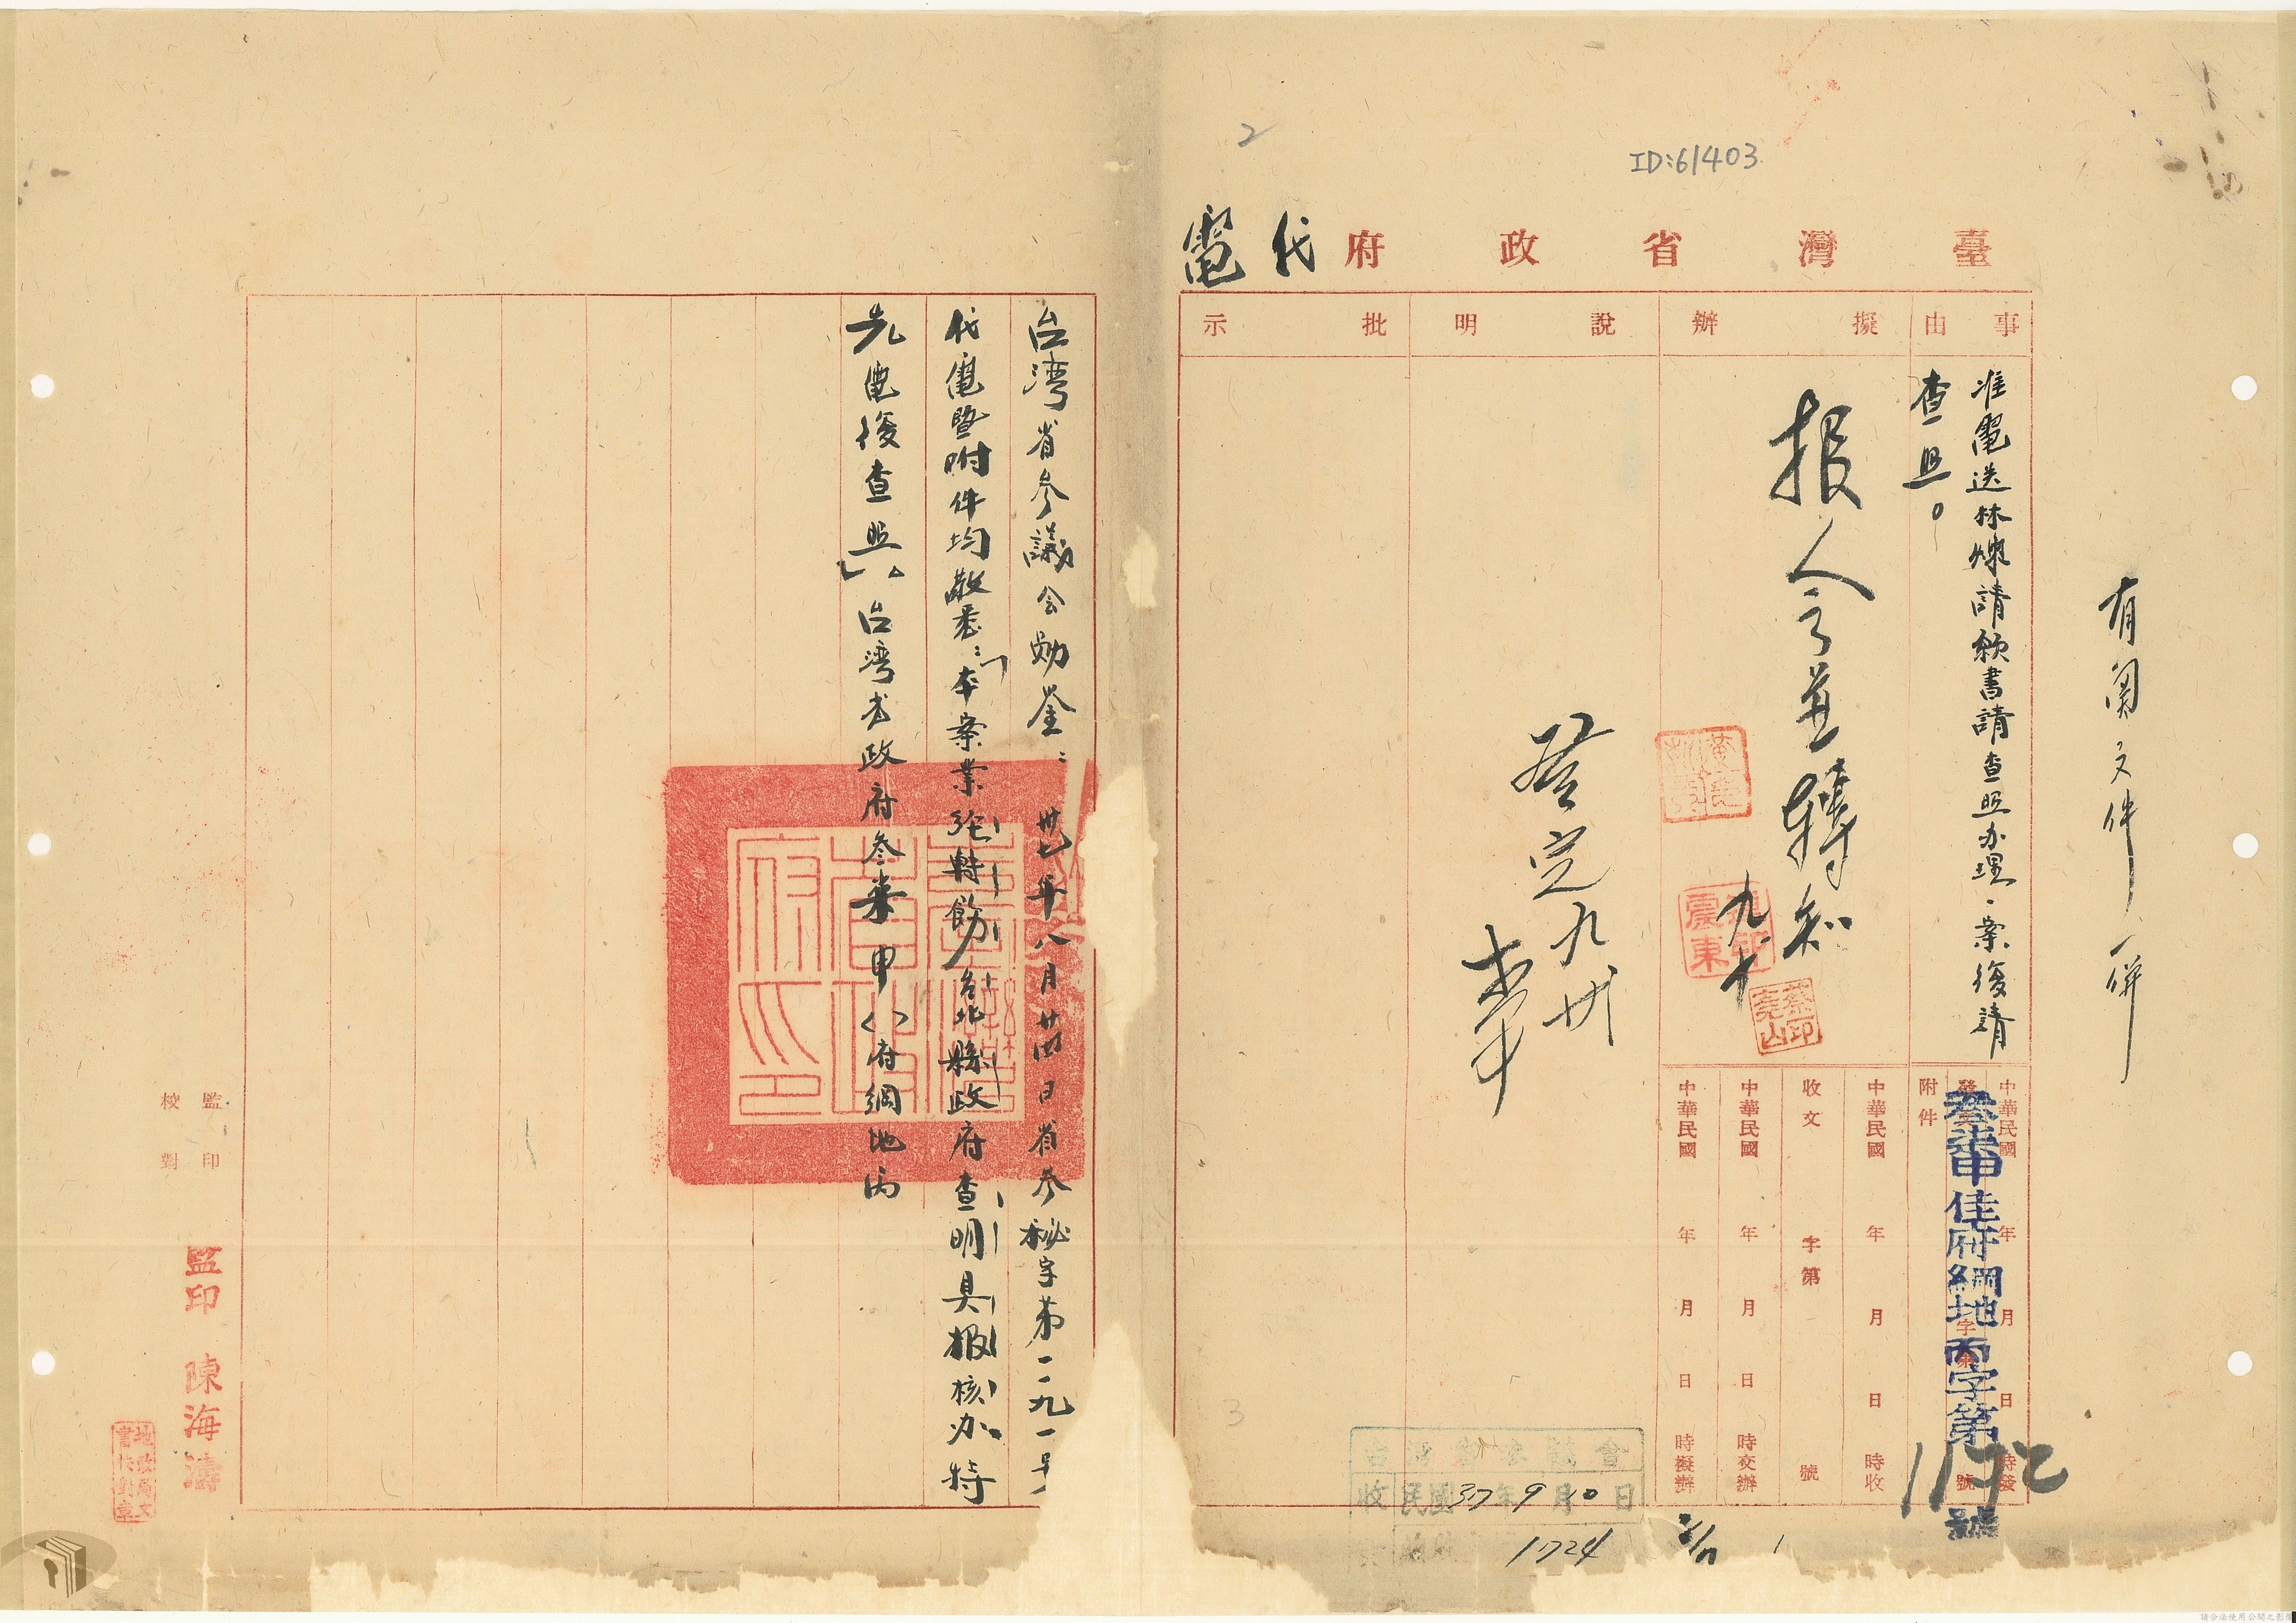 2
ID:61403
臺灣省政府代電
事由
擬辦
說明
批示
有關文件一併
准電送林煉請願書請查照办理一案復請
查照。
報人会並轉知
九、十
蔡印堯山
震東
中華民國 年 月 日 時發
附件
參柒申佳府綱地丙字第1172號
中華民國 年 月 日 時收
收文 字第 號
中華民國 年 月 日 時交辦
中華民國 年 月 日 時擬辦
台灣省參議會
收 民國37年9月10日
1724
3
台湾省参議会勛鑒：卅七年八月廿四日省参秘字第一一九一号
代電暨附件均敬悉：「本案業經轉飭台北縣政府查明具报核办特
先電復查照」。台湾省政府叁柒申（）府綱地丙
臺灣省政府印
監印
校對
監印 陳海濤
地政局文書校對章
請合法使用公開之影像